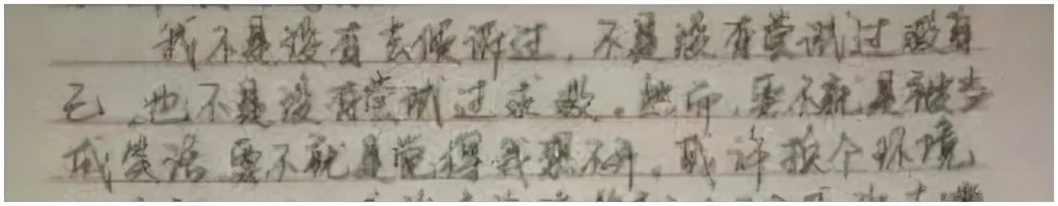 我不是没有去倾诉过，不是没有尝试过改自
己，也不是没有尝试过求救。然而，要不就是被当
成笑话，要不就是觉得我想不开，或许换个环境